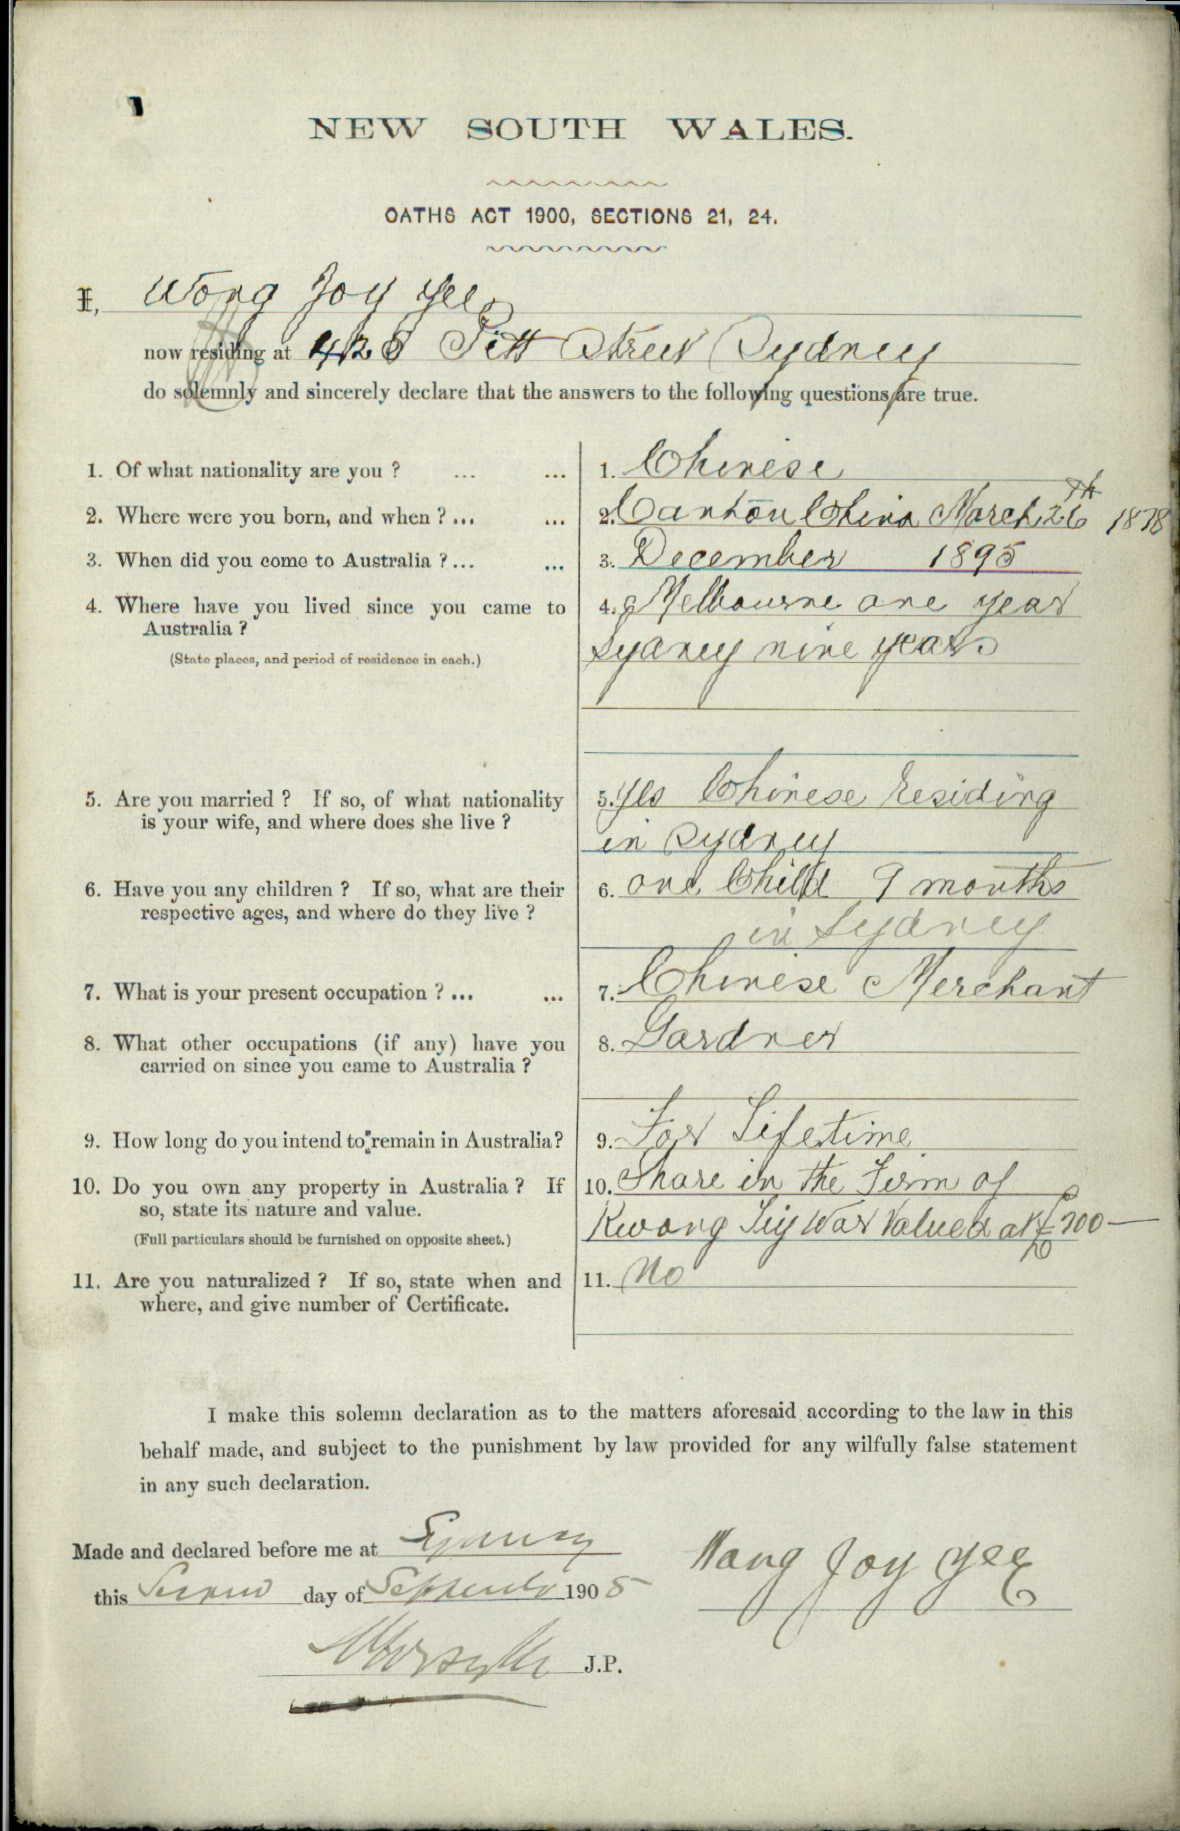 NEW SOUTH WALES.
OATHS ACT 1900, SECTIONS 21, 24.
I, Wong Joy Yee
now residing at 428 Pitt Street Sydney
do solemnly and sincerely declare that the answers to the following questions are true.
1. Of what nationality are you ? ... ... 1. Chinese
2. Where were you born, and when ? ... ... 2. Canton China March 26th 1878
3. When did you come to Australia ? ... ... 3. December 1895
4. Where have you lived since you came to 4. Melbourne one year
Australia ? Sydney nine years
(State places, and period of residence in each.)
5. Are you married ? If so, of what nationality 5. Yes Chinese residing
is your wife, and where does she live ? in Sydney
6. Have you any children ? If so, what are their 6. one Child 9 months
respective ages, and where do they live ? in Sydney
7. What is your present occupation ? ... ... 7. Chinese Merchant
8. What other occupations (if any) have you 8. Gardner
carried on since you came to Australia ?
9. How long do you intend to remain in Australia? 9. For Lifetime
10. Do you own any property in Australia ? If 10. Share in the Firm of
so, state its nature and value. Kwong War Valued at £200—
(Full particulars should be furnished on opposite sheet.)
11. Are you naturalized ? If so, state when and 11. No
where, and give number of Certificate.
I make this solemn declaration as to the matters aforesaid according to the law in this
behalf made, and subject to the punishment by law provided for any wilfully false statement
in any such declaration.
Made and declared before me at Sydney
this Second day of September 1905
Wong Joy Yee
J.P.